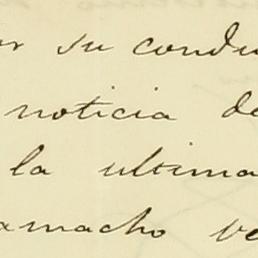 su condu
noticia de
la ultima
amacho ve